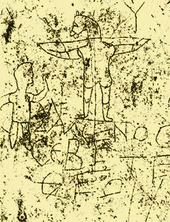 Υ
ΑΛΕ
ΞΑΜΕΝΟC
CΕΒΕΤΕ
ΘΕΟΝ